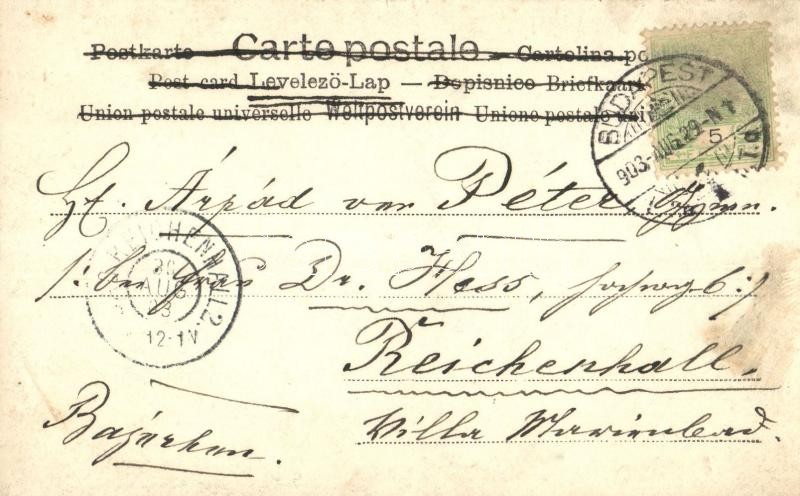 Postkarte Carte postale Cartolina po
Post card Levelezö-Lap — Dopisnice Briefkaart
Union postale universelle Weltpostverein Unione postale uni
BUDAPEST
903-AUG.29-N1
5
H. Árpád von Péter, Gymn.
REICHENHALL 2.
30
AUG
03
12-1V
/: bei Frau Dr. Hess, :/
Reichenhall.
Bajerhen.
Villa Marienbad.